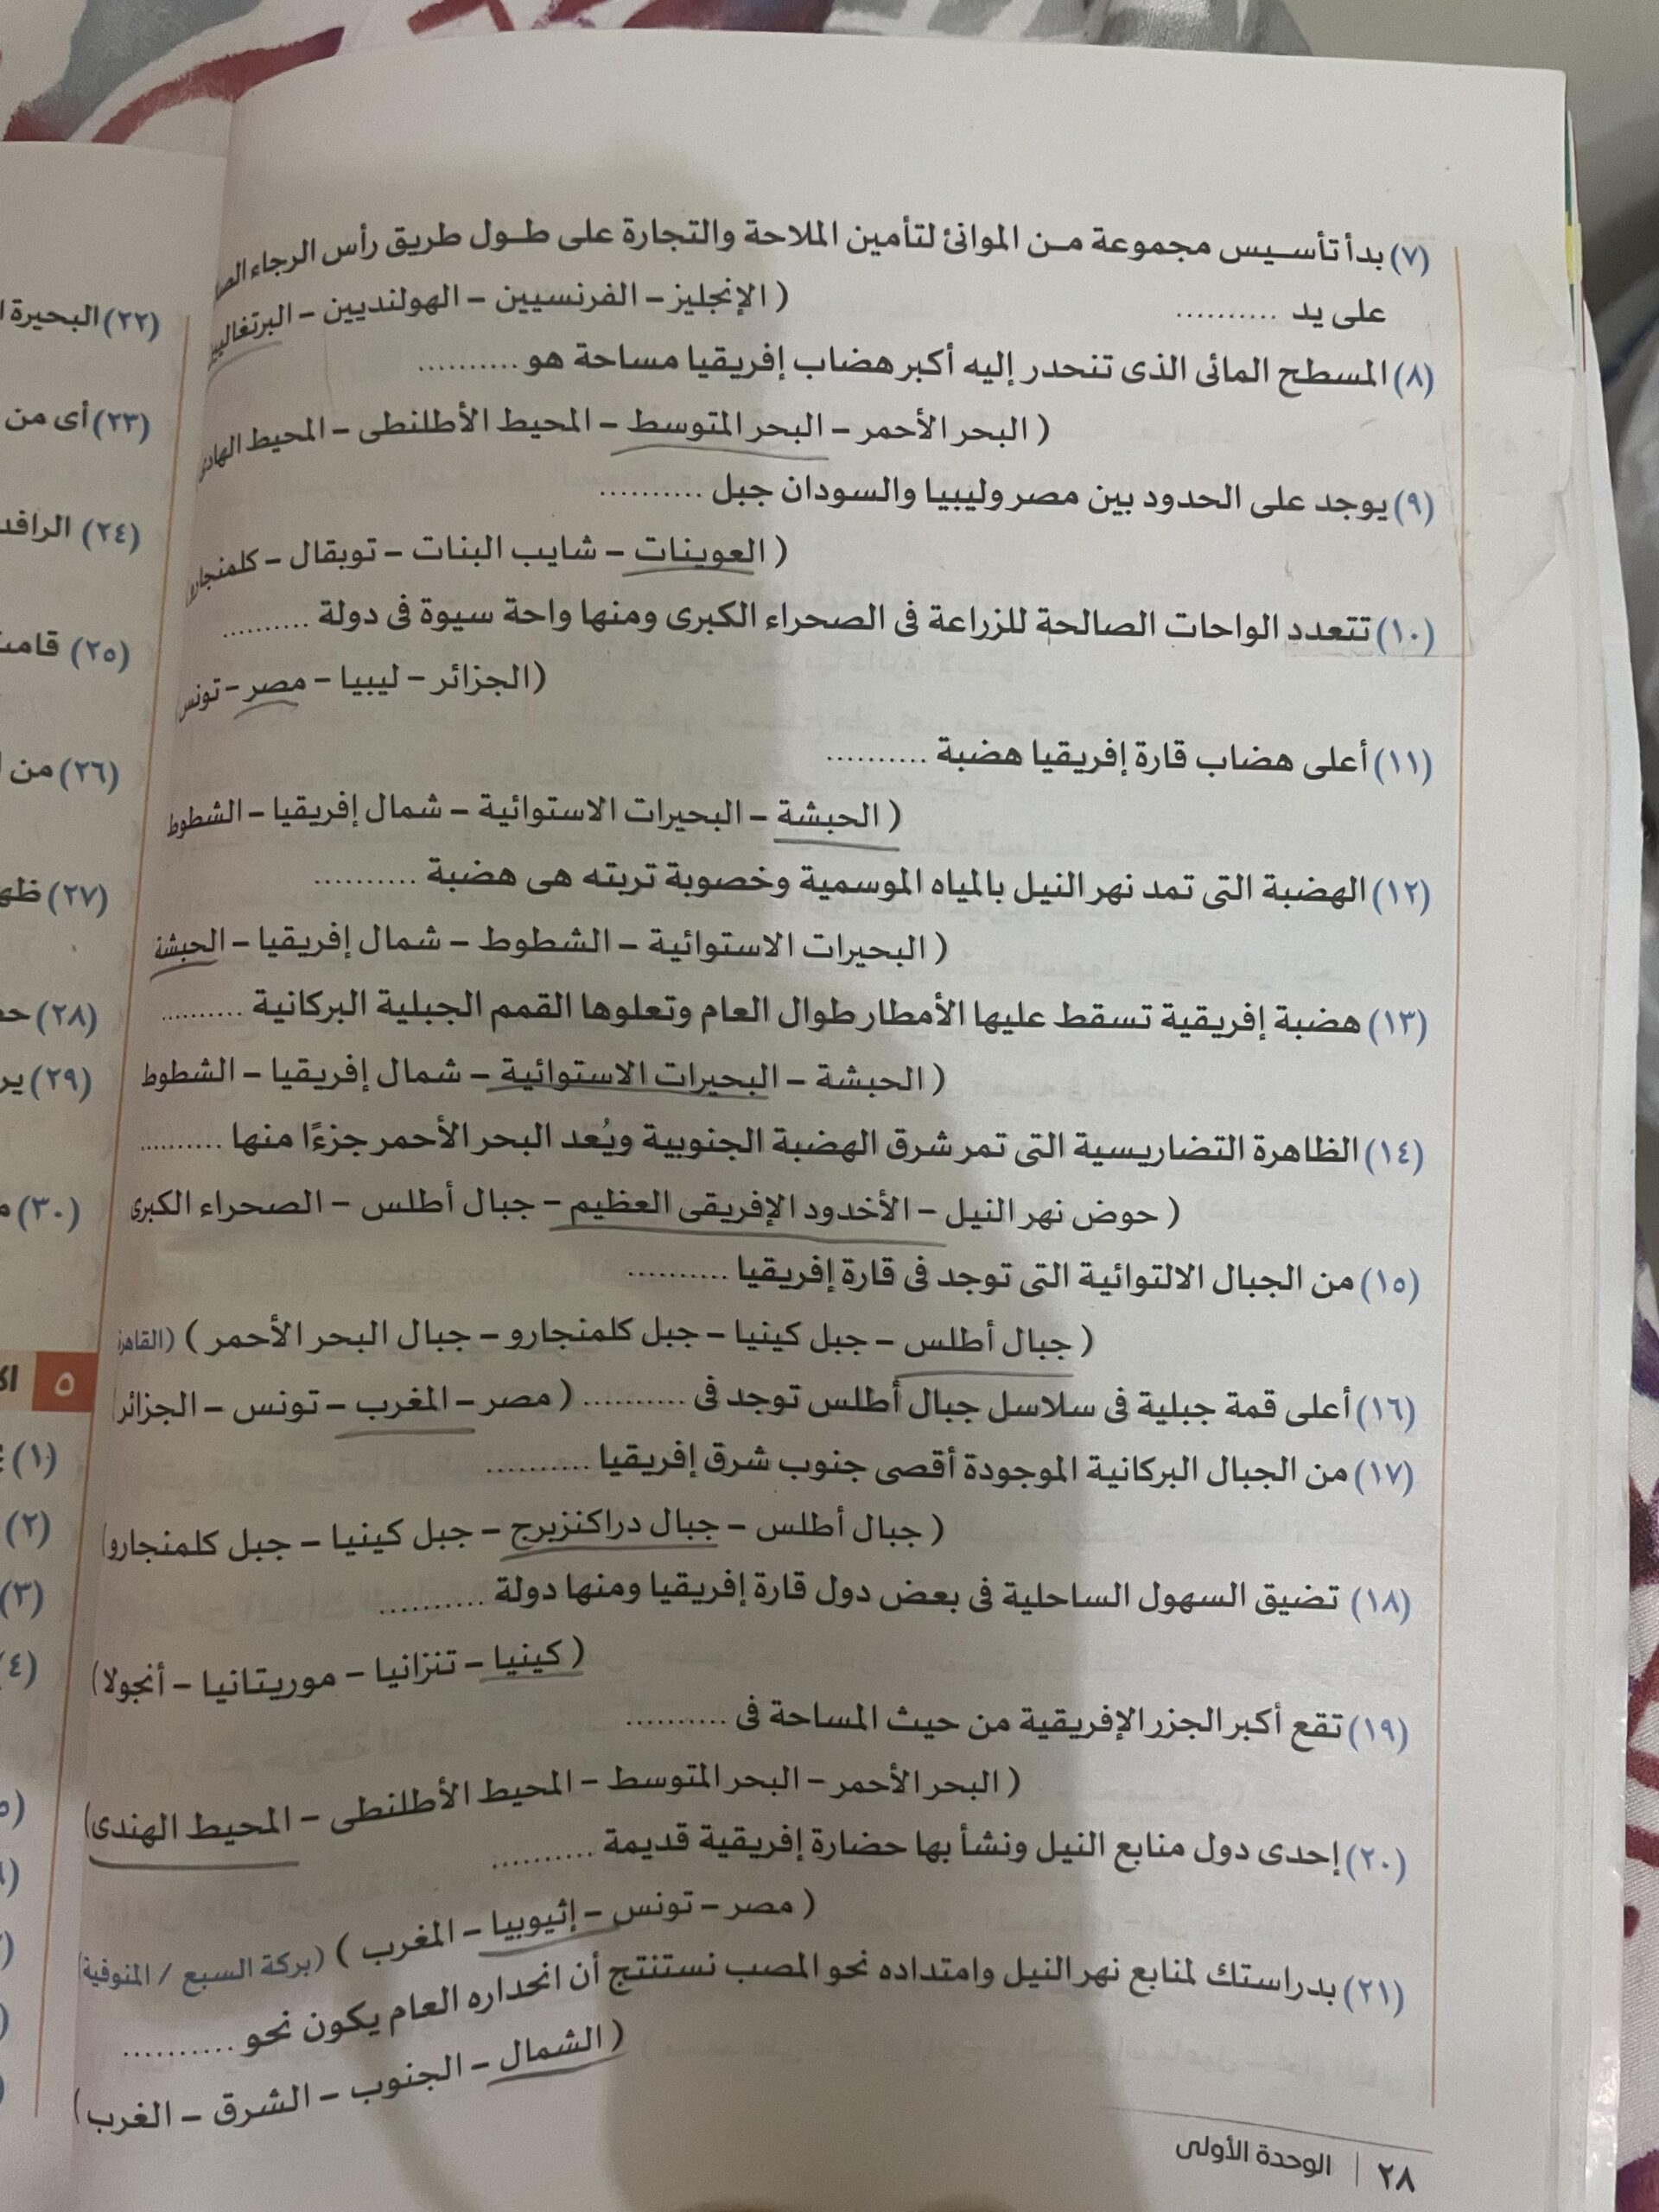 (٧) بدأ تأسيس مجموعة من الموانئ لتأمين الملاحة والتجارة على طول طريق رأس الرجاء
على يد ..........
( الإنجليز – الفرنسيين – الهولنديين – البرتغاليين
(٨) المسطح المائى الذى تنحدر إليه أكبر هضاب إفريقيا مساحة هو ..........
( البحر الأحمر – البحر المتوسط – المحيط الأطلنطى – المحيط الهادى
(٩) يوجد على الحدود بين مصر وليبيا والسودان جبل ..........
( العوينات – شايب البنات – توبقال – كلمنجارو
(١٠) تتعدد الواحات الصالحة للزراعة فى الصحراء الكبرى ومنها واحة سيوة فى دولة ..........
(الجزائر – ليبيا – مصر – تونس)
(١١) أعلى هضاب قارة إفريقيا هضبة ..........
( الحبشة – البحيرات الاستوائية – شمال إفريقيا – الشطوط
(١٢) الهضبة التى تمد نهر النيل بالمياه الموسمية وخصوبة تربته هى هضبة ..........
( البحيرات الاستوائية – الشطوط – شمال إفريقيا – الحبشة
(١٣) هضبة إفريقية تسقط عليها الأمطار طوال العام وتعلوها القمم الجبلية البركانية ..........
( الحبشة – البحيرات الاستوائية – شمال إفريقيا – الشطوط
(١٤) الظاهرة التضاريسية التى تمر شرق الهضبة الجنوبية ويُعد البحر الأحمر جزءًا منها ..........
( حوض نهر النيل – الأخدود الإفريقى العظيم – جبال أطلس – الصحراء الكبرى
(١٥) من الجبال الالتوائية التى توجد فى قارة إفريقيا ..........
( جبال أطلس – جبل كينيا – جبل كلمنجارو – جبال البحر الأحمر ) (القاهرة
(١٦) أعلى قمة جبلية فى سلاسل جبال أطلس توجد فى .......... ( مصر – المغرب – تونس – الجزائر)
(١٧) من الجبال البركانية الموجودة أقصى جنوب شرق إفريقيا ..........
( جبال أطلس – جبال دراكنزبرج – جبل كينيا – جبل كلمنجارو)
(١٨) تضيق السهول الساحلية فى بعض دول قارة إفريقيا ومنها دولة ..........
( كينيا – تنزانيا – موريتانيا – أنجولا)
(١٩) تقع أكبر الجزر الإفريقية من حيث المساحة فى ..........
( البحر الأحمر – البحر المتوسط – المحيط الأطلنطى – المحيط الهندى)
(٢٠) إحدى دول منابع النيل ونشأ بها حضارة إفريقية قديمة ..........
( مصر – تونس – إثيوبيا – المغرب ) (بركة السبع / المنوفية)
(٢١) بدراستك لمنابع نهر النيل وامتداده نحو المصب نستنتج أن انحداره العام يكون نحو ..........
( الشمال – الجنوب – الشرق – الغرب)
٢٨ | الوحدة الأولى
(٢٢) البحيرة
(٢٣) أى من
(٢٤)
(٢٥)
(٢٦) من
(٢٧)
(٢٨)
(٢٩)
(٣٠)
٥
(١)
(٢)
(٣)
(٤)